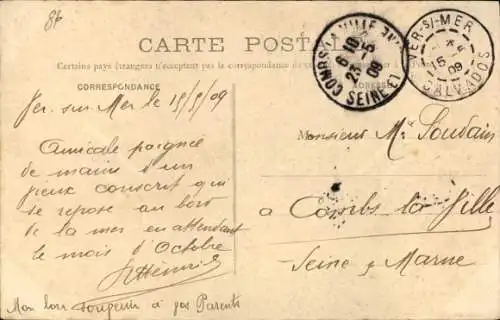 87
CARTE POST
Certains pays étrangers n'acceptent pas la correspondance de
CORRESPONDANCE
ADRESSE
COMBS-LA-VILLE
6 10
23-5
09
SEINE-ET
VER-S/-MER
15-5
09
CALVADOS
Ver-sur-Mer le 15/5/09
Amicale poignée
de mains d'un
vieux conscrit qui
se repose au bord
de la mer en attendant
le mois d'Octobre
Monsieur Mr Soudain
a Combs la Ville
Seine & Marne
Mon bon souvenir à vos Parents